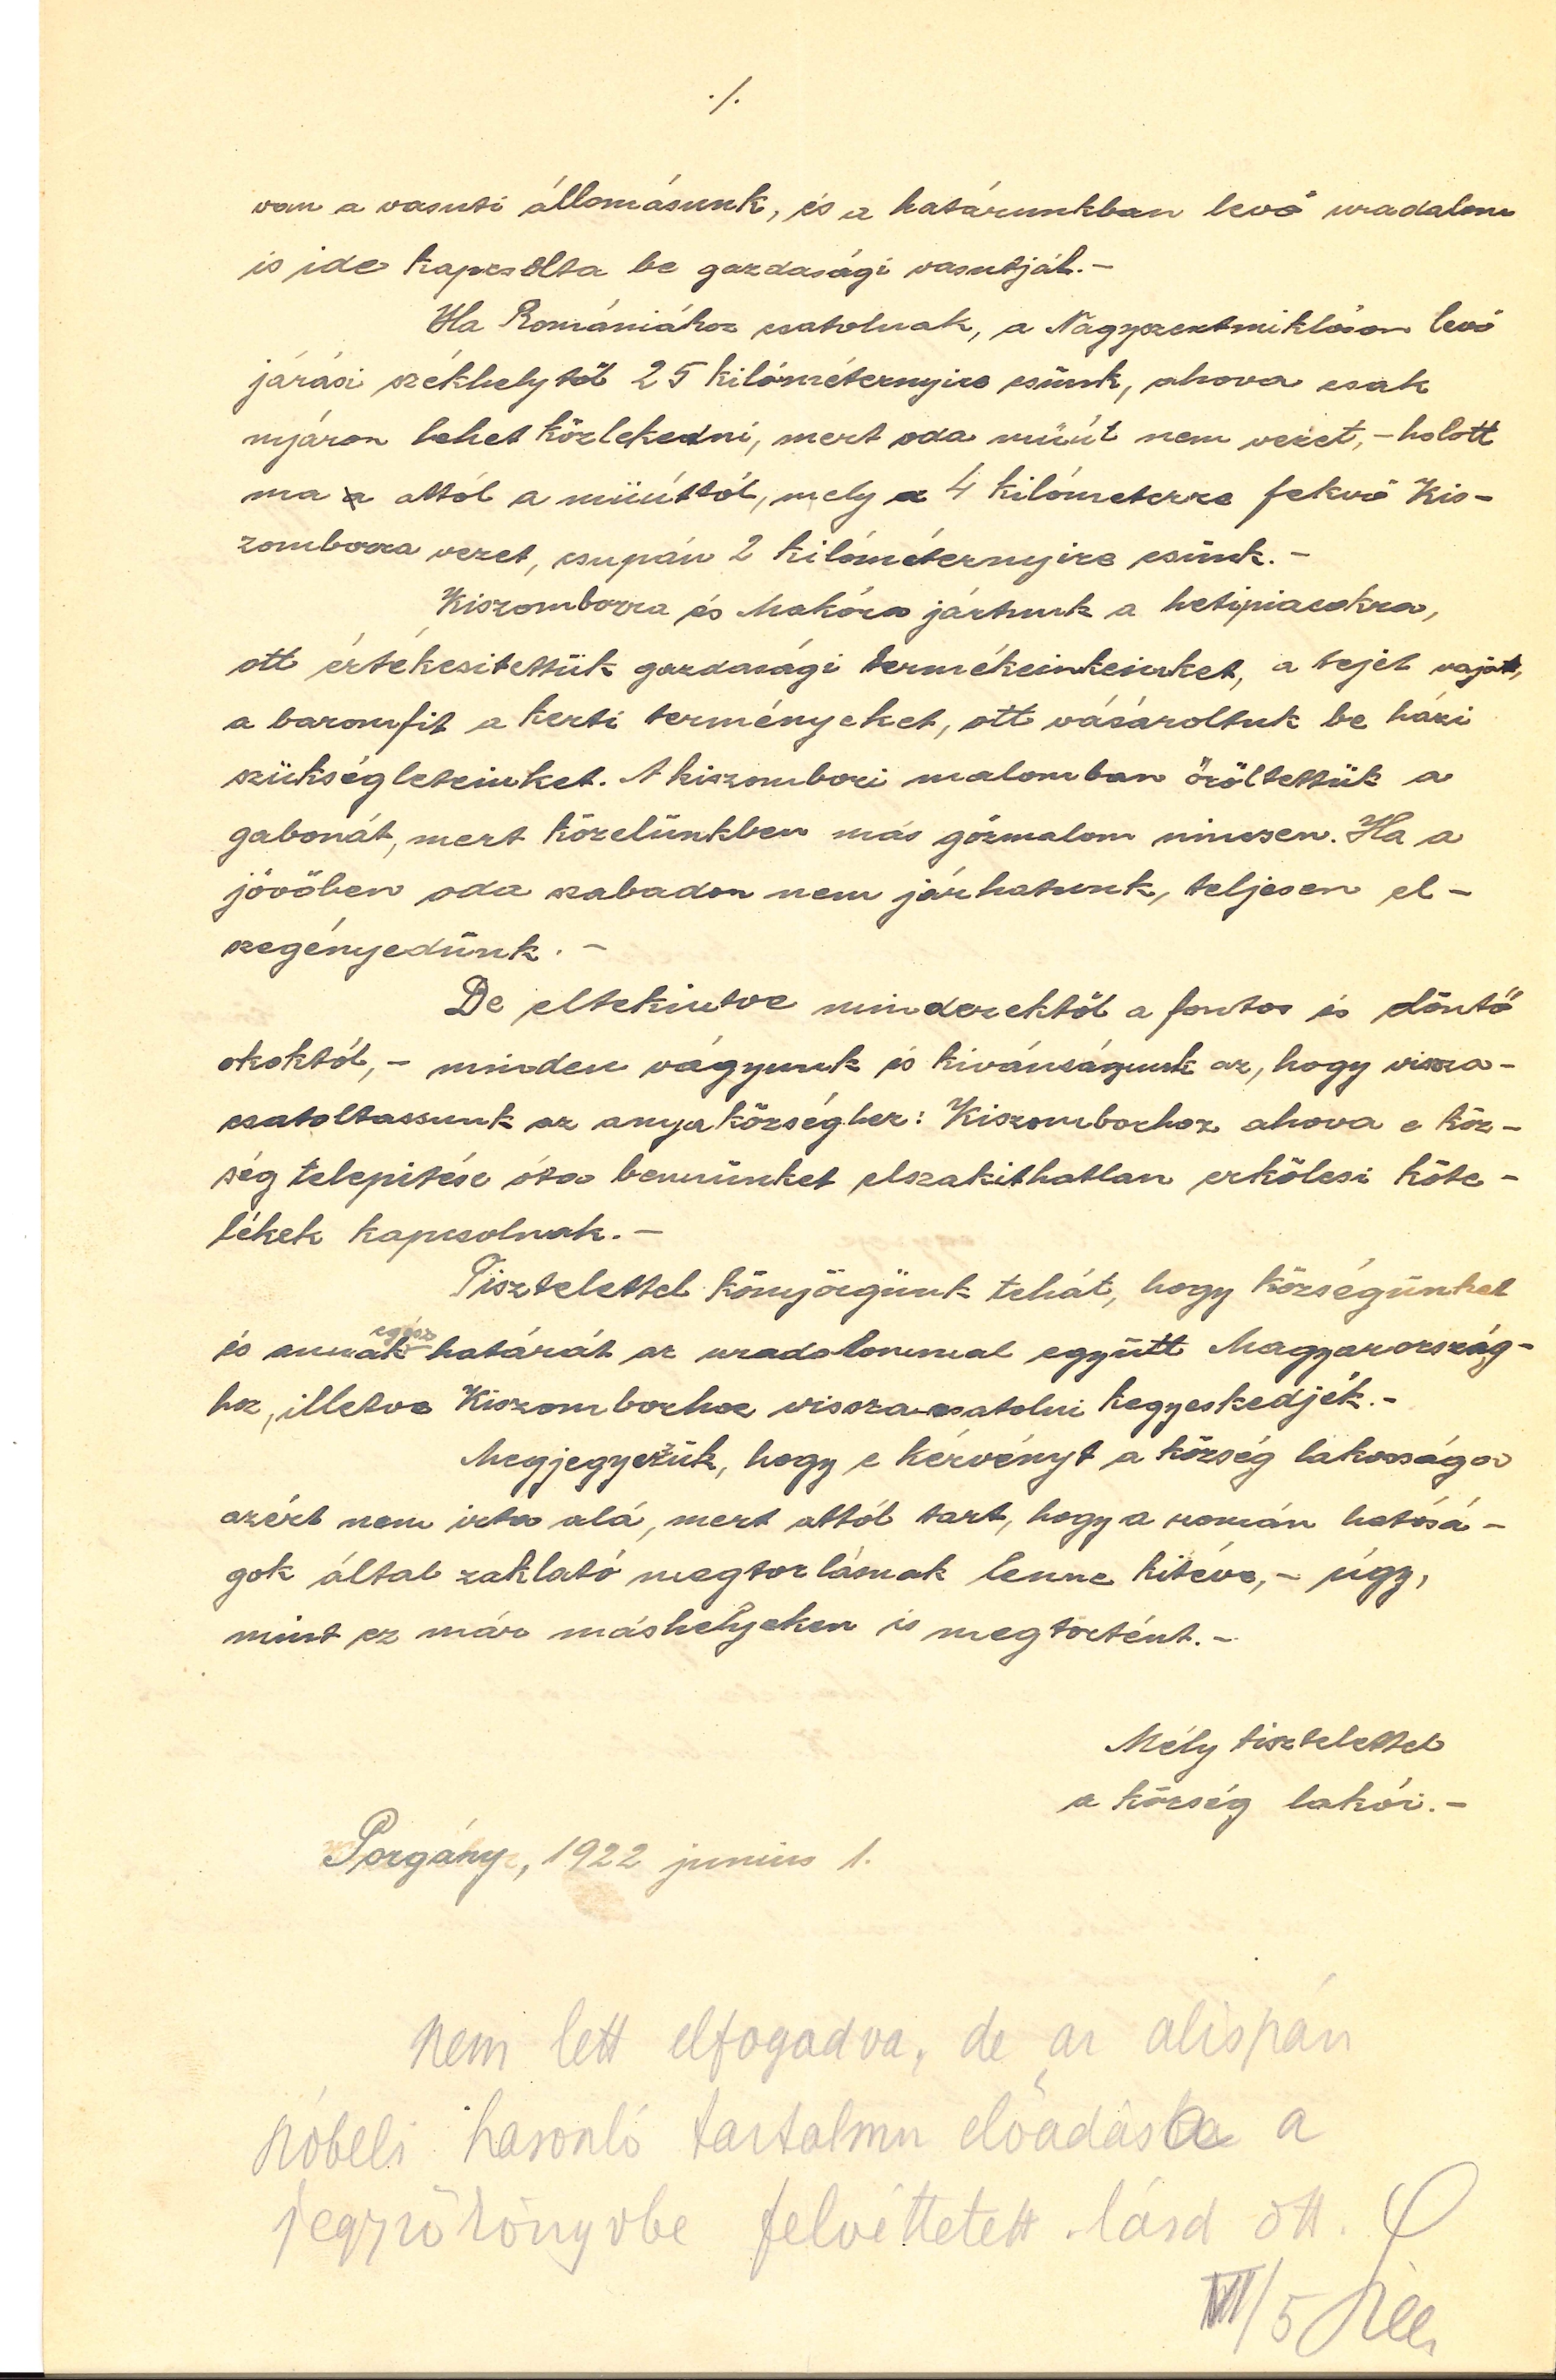 ./.
van a vasuti állomásunk, és a határunkban levő uradalom
is ide kapcsolta be gazdasági vasutját.-
Ha Romániához csatolnak, a Nagyszentmiklóson levő
járási székhelytől 25 kilóméternyire esünk, ahova csak
nyáron lehet közlekedni, mert oda müút nem vezet,- holott
ma a attól a müúttól, mely a 4 kilómeterre fekvő Kis-
zomborra vezet, csupán 2 kilóméternyire esünk.-
Kiszomborra és Makóra jártunk a hetipiacokra,
ott értékesitettük gazdasági termékeinkeinket, a tejet vajat,
a baromfit a kerti terményeket, ott vásároltuk be házi
szükségleteinket. A kiszombori malomban őröltettük a
gabonát, mert közelünkben más gőzmalom nincsen. Ha a
jövőben oda szabadon nem járhatunk, teljesen el-
szegényedünk.-
De eltekintve minderektől a fontos és döntő
okoktól,- minden vágyunk és kivánságunk az, hogy vissza-
csatoltassunk az anyaközséghez: Kiszomborhoz ahova e köz-
ség telepitése óta bennünket elszakithatlan erkölcsi köte-
lékek kapcsolnak.-
Tisztelettel könyörgünk tehát, hogy községünket
és annak egész határát az uradalommal együtt Magyarország-
hoz, illetve Kiszomborhoz visszacsatolni kegyeskedjék.-
Megjegyezük, hogy e kérvényt a község lakossága
azért nem irta alá, mert attól tart, hogy a román hatósá-
gok által zaklató megtorlásnak lenne kitéve,- úgy,
mint ez már máshelyeken is megtörtént.-
Mély tisztelettel
a község lakói.-
Porgány, 1922 junius 1.
Nem lett elfogadva, de az alispán
szóbeli hasonló tartalmu előadása a
jegyzőkönyvbe felvétetett lásd ott.
VII/5